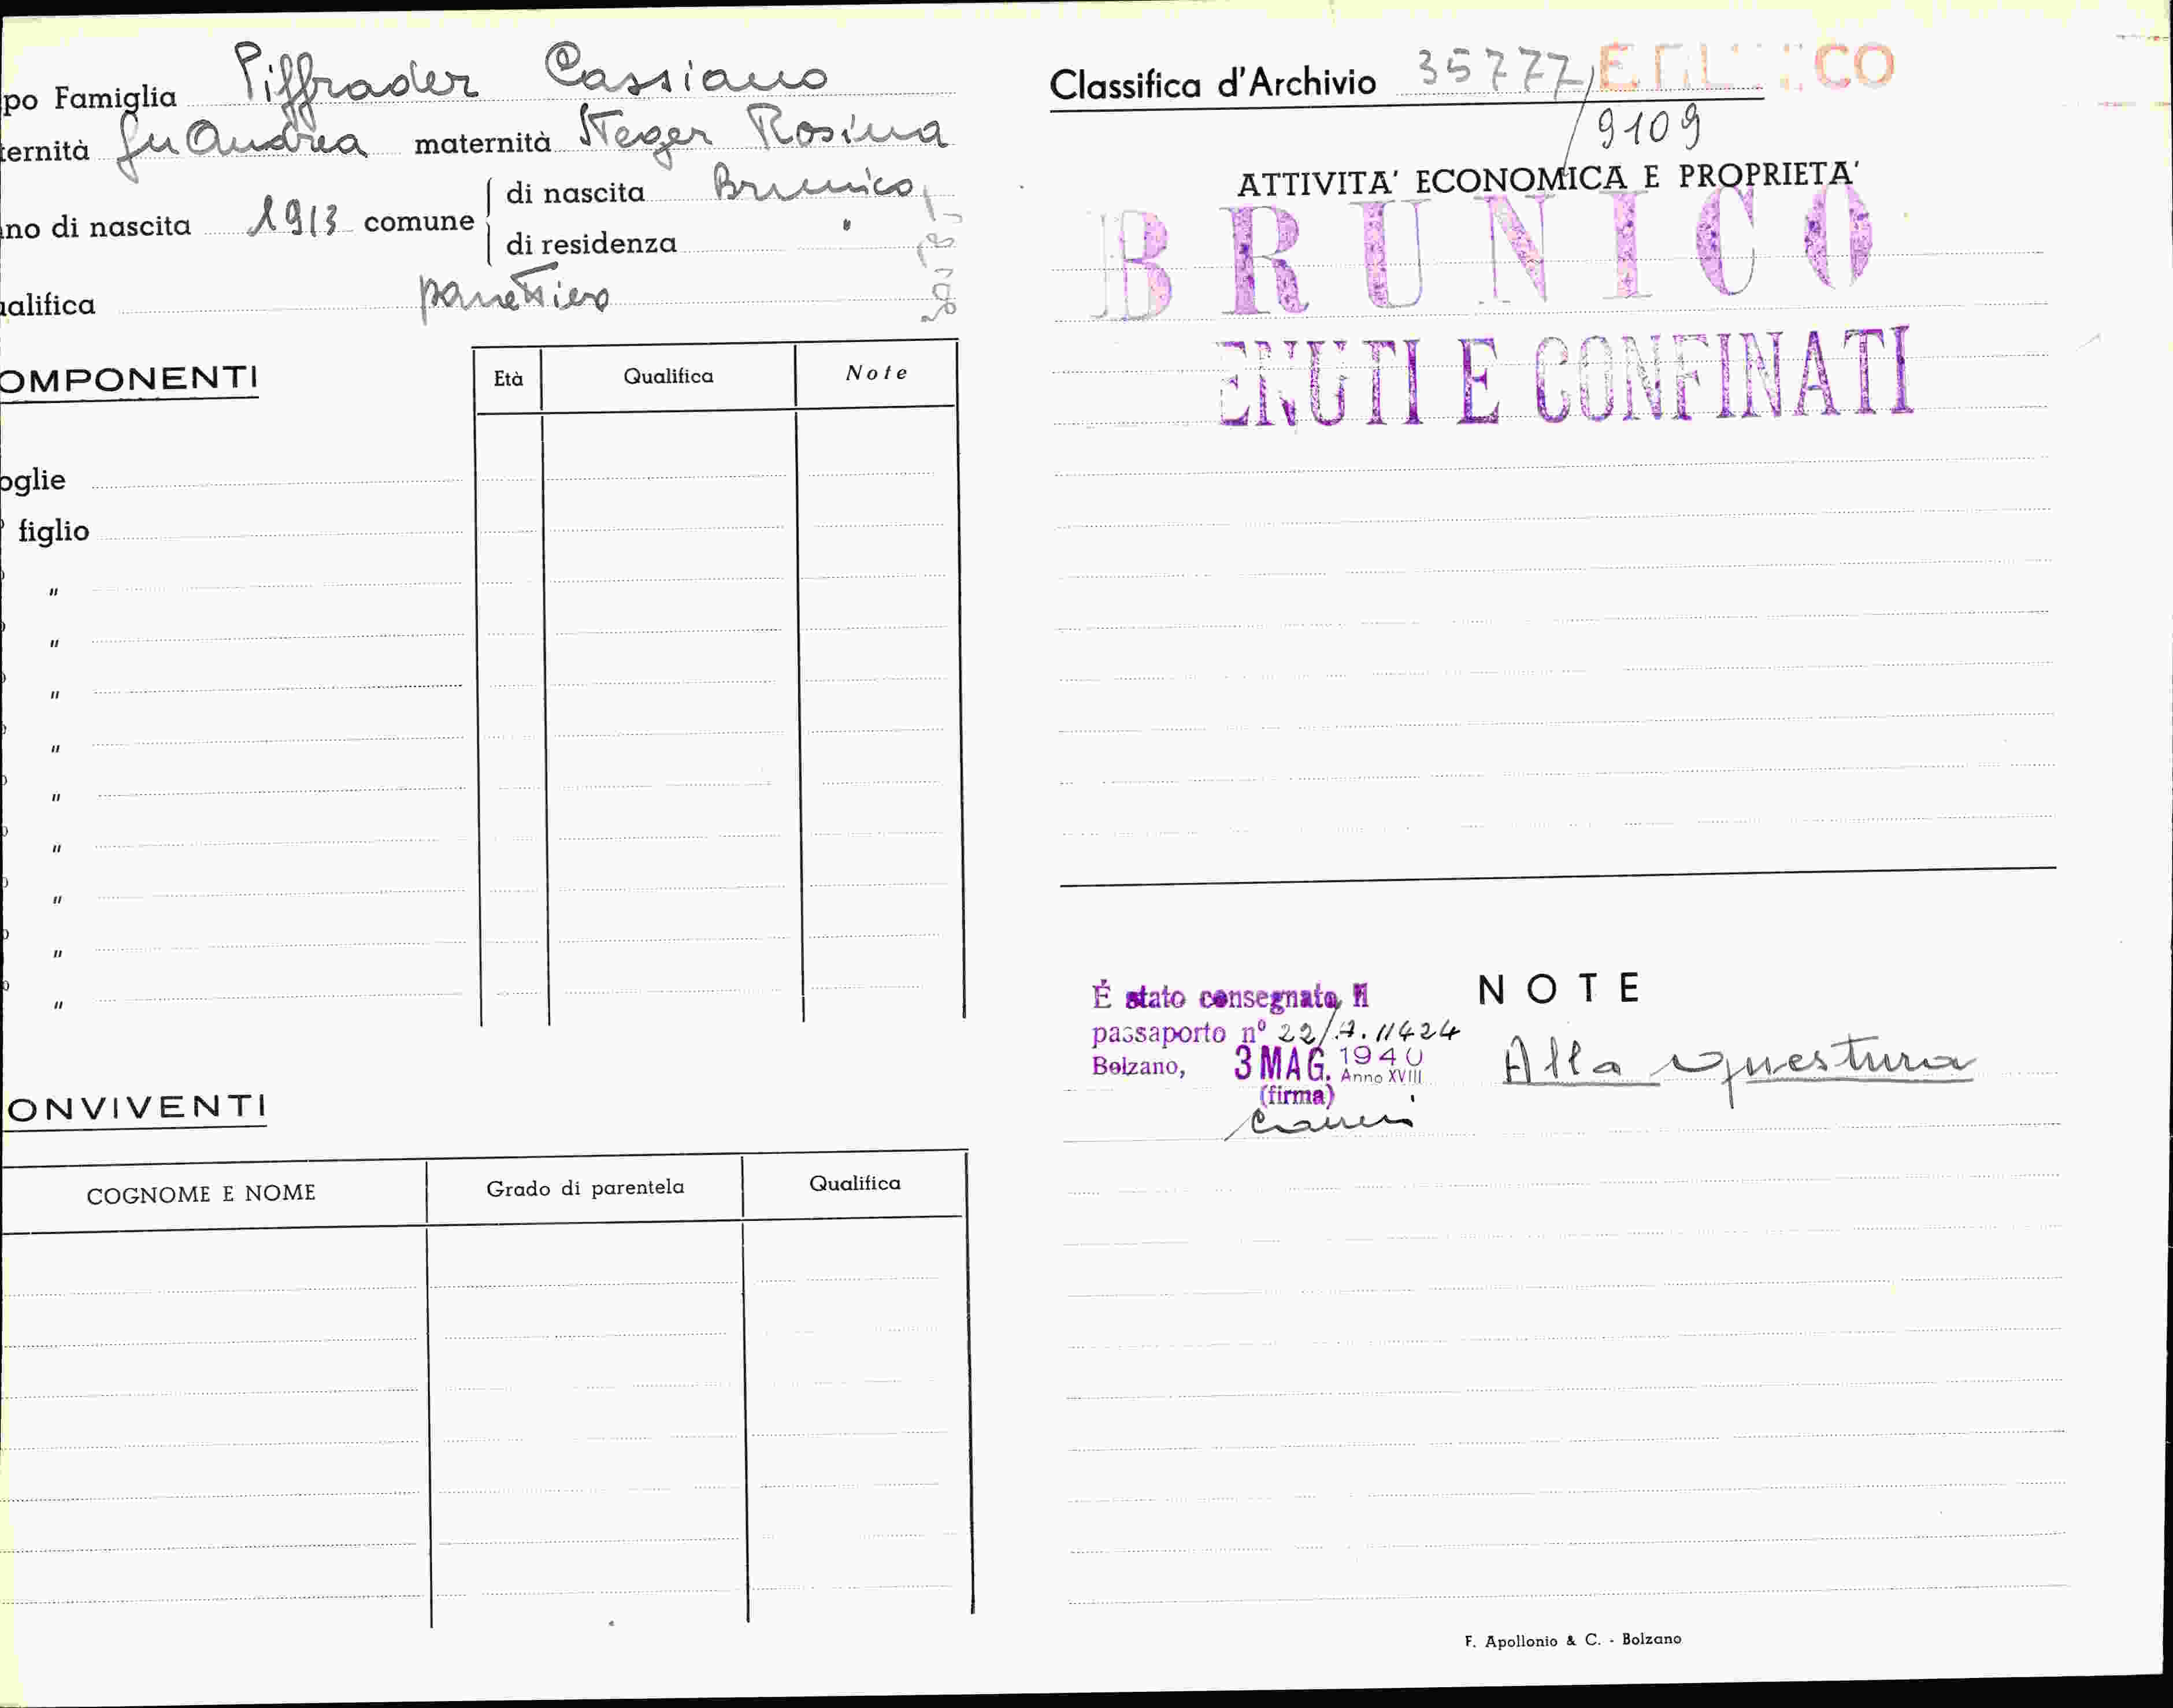 po Famiglia Piffrader Cassiano
ernità fu Andrea maternità Steger Rosina
no di nascita 1913 comune di nascita Brunico
di residenza "
alifica panettiere
OMPONENTI
Età Qualifica Note
oglie
figlio
"
"
"
"
"
"
"
"
"
ONVIVENTI
COGNOME E NOME Grado di parentela Qualifica
Classifica d'Archivio 35777/
9109
ATTIVITA' ECONOMICA E PROPRIETA'
BRUNICO
ENUTI E CONFINATI
NOTE
È stato consegnato il
passaporto nº 22/A. 11424
Bolzano, 3 MAG. 1940
Anno XVIII
(firma)
Alla questura
F. Apollonio & C. - Bolzano